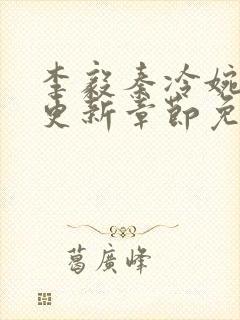 李毅秦冷婉
更新章节免
葛廣峰